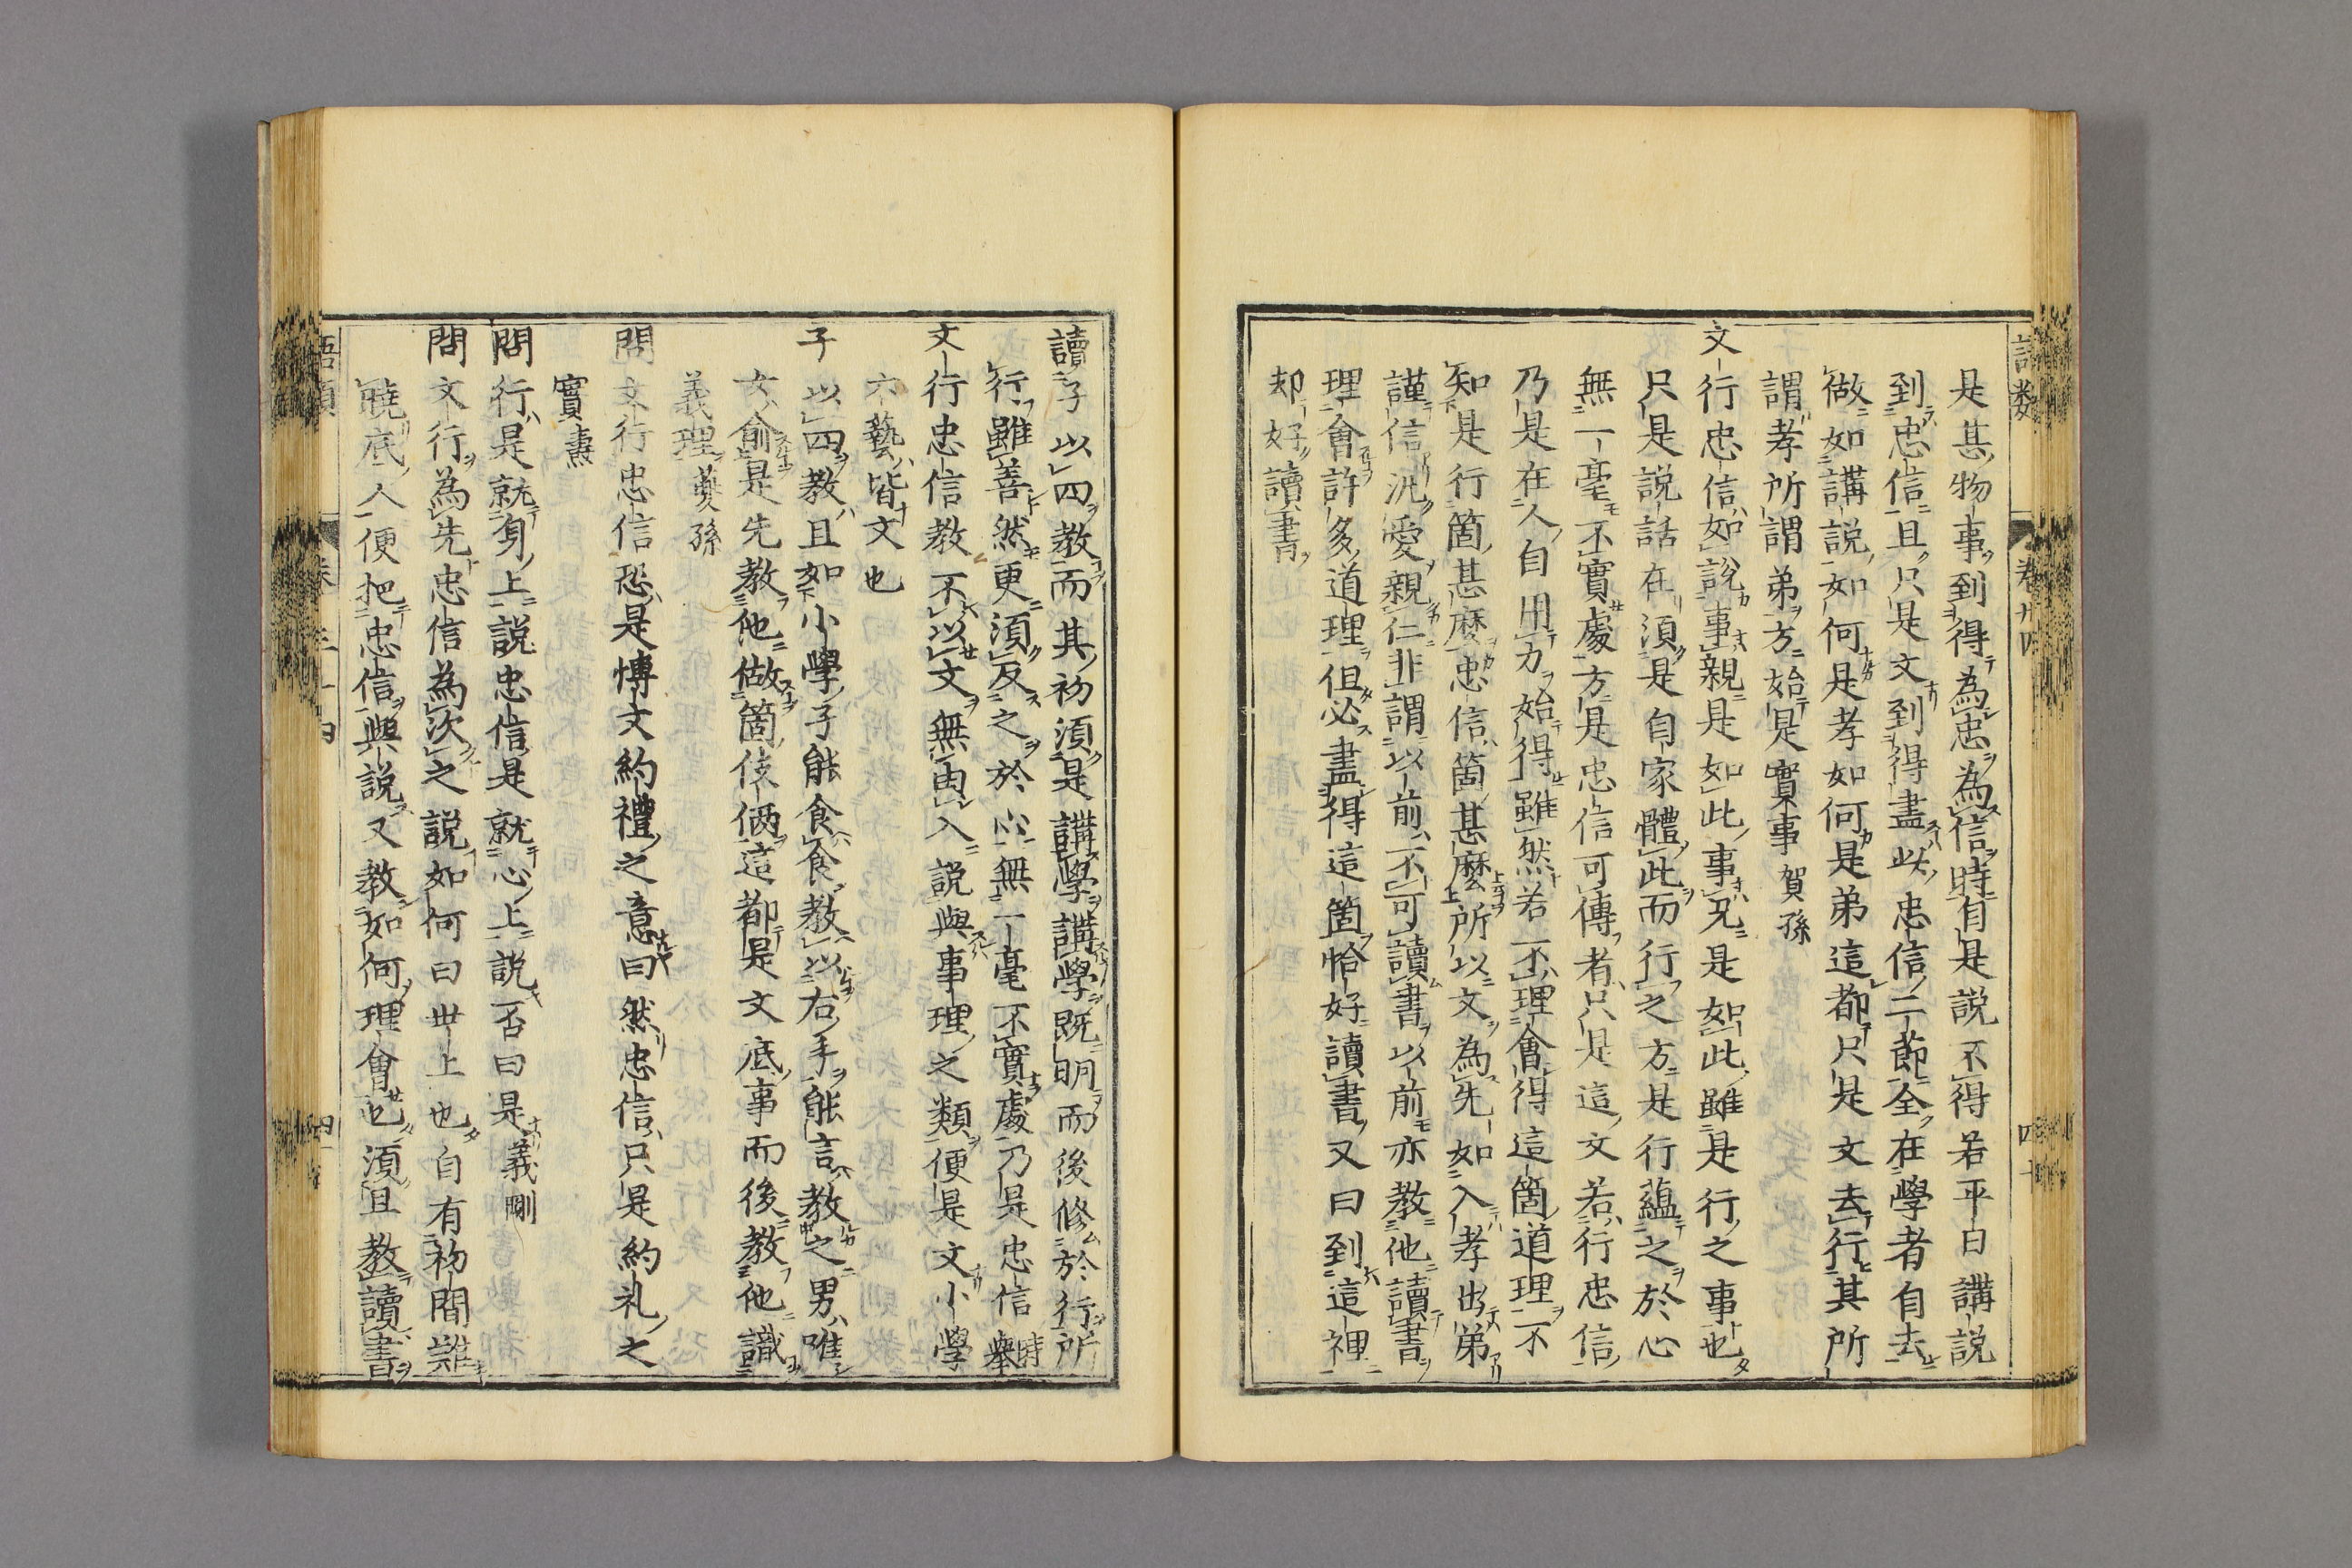 是甚物事到得為忠為信時自是説不得若平日講説
到忠信且只是文到得盡此忠信二節全在學者自去
做如講説如何是孝如何是弟這都只是文去行其所
謂孝所謂弟方始是實事賀孫
文行忠信如說事親是如此事兄是如此雖是行之事也
只是説話在須是自家體此而行之方是行蘊之於心
無一毫不實處方是忠信可傳者只是這文若行忠信
乃是在人自用力始得雖然若不理會得這箇道理不
知是行箇甚麼忠信箇甚麼所以文為先如入孝出弟
謹信汎愛親仁非謂以前不可讀書以前亦教他讀書
理會許多道理但必盡得這箇恰好讀書又曰到這裡
却好讀書
讀子以四教而其初須是講學講學既明而後修於行所
行雖善然更須反之於心無一毫不實處乃是忠信時舉
文行忠信教不以文無由入説與事理之類便是文小學
六藝皆文也
子以四教且如小學子能食食教以右手能言教之男唯
女俞是先教他做箇伎倆這都是文底事而後教他識
義理夔孫
問文行忠信恐是博文約禮之意曰然忠信只是約礼之
實燾
問行是就身上説忠信是就心上説否曰是義剛
問文行為先忠信為次之説如何曰世上也自有初間難
曉底人便把忠信與説又教如何理會也須且教讀書